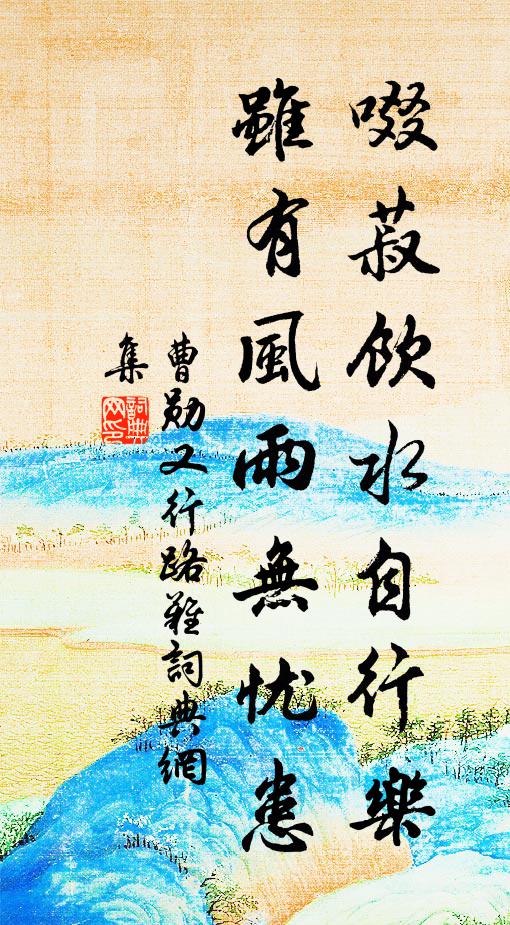 啜菽飲水自行樂
雖有風雨無忧患
曹勛又行路難詞典網
集
詞典网印